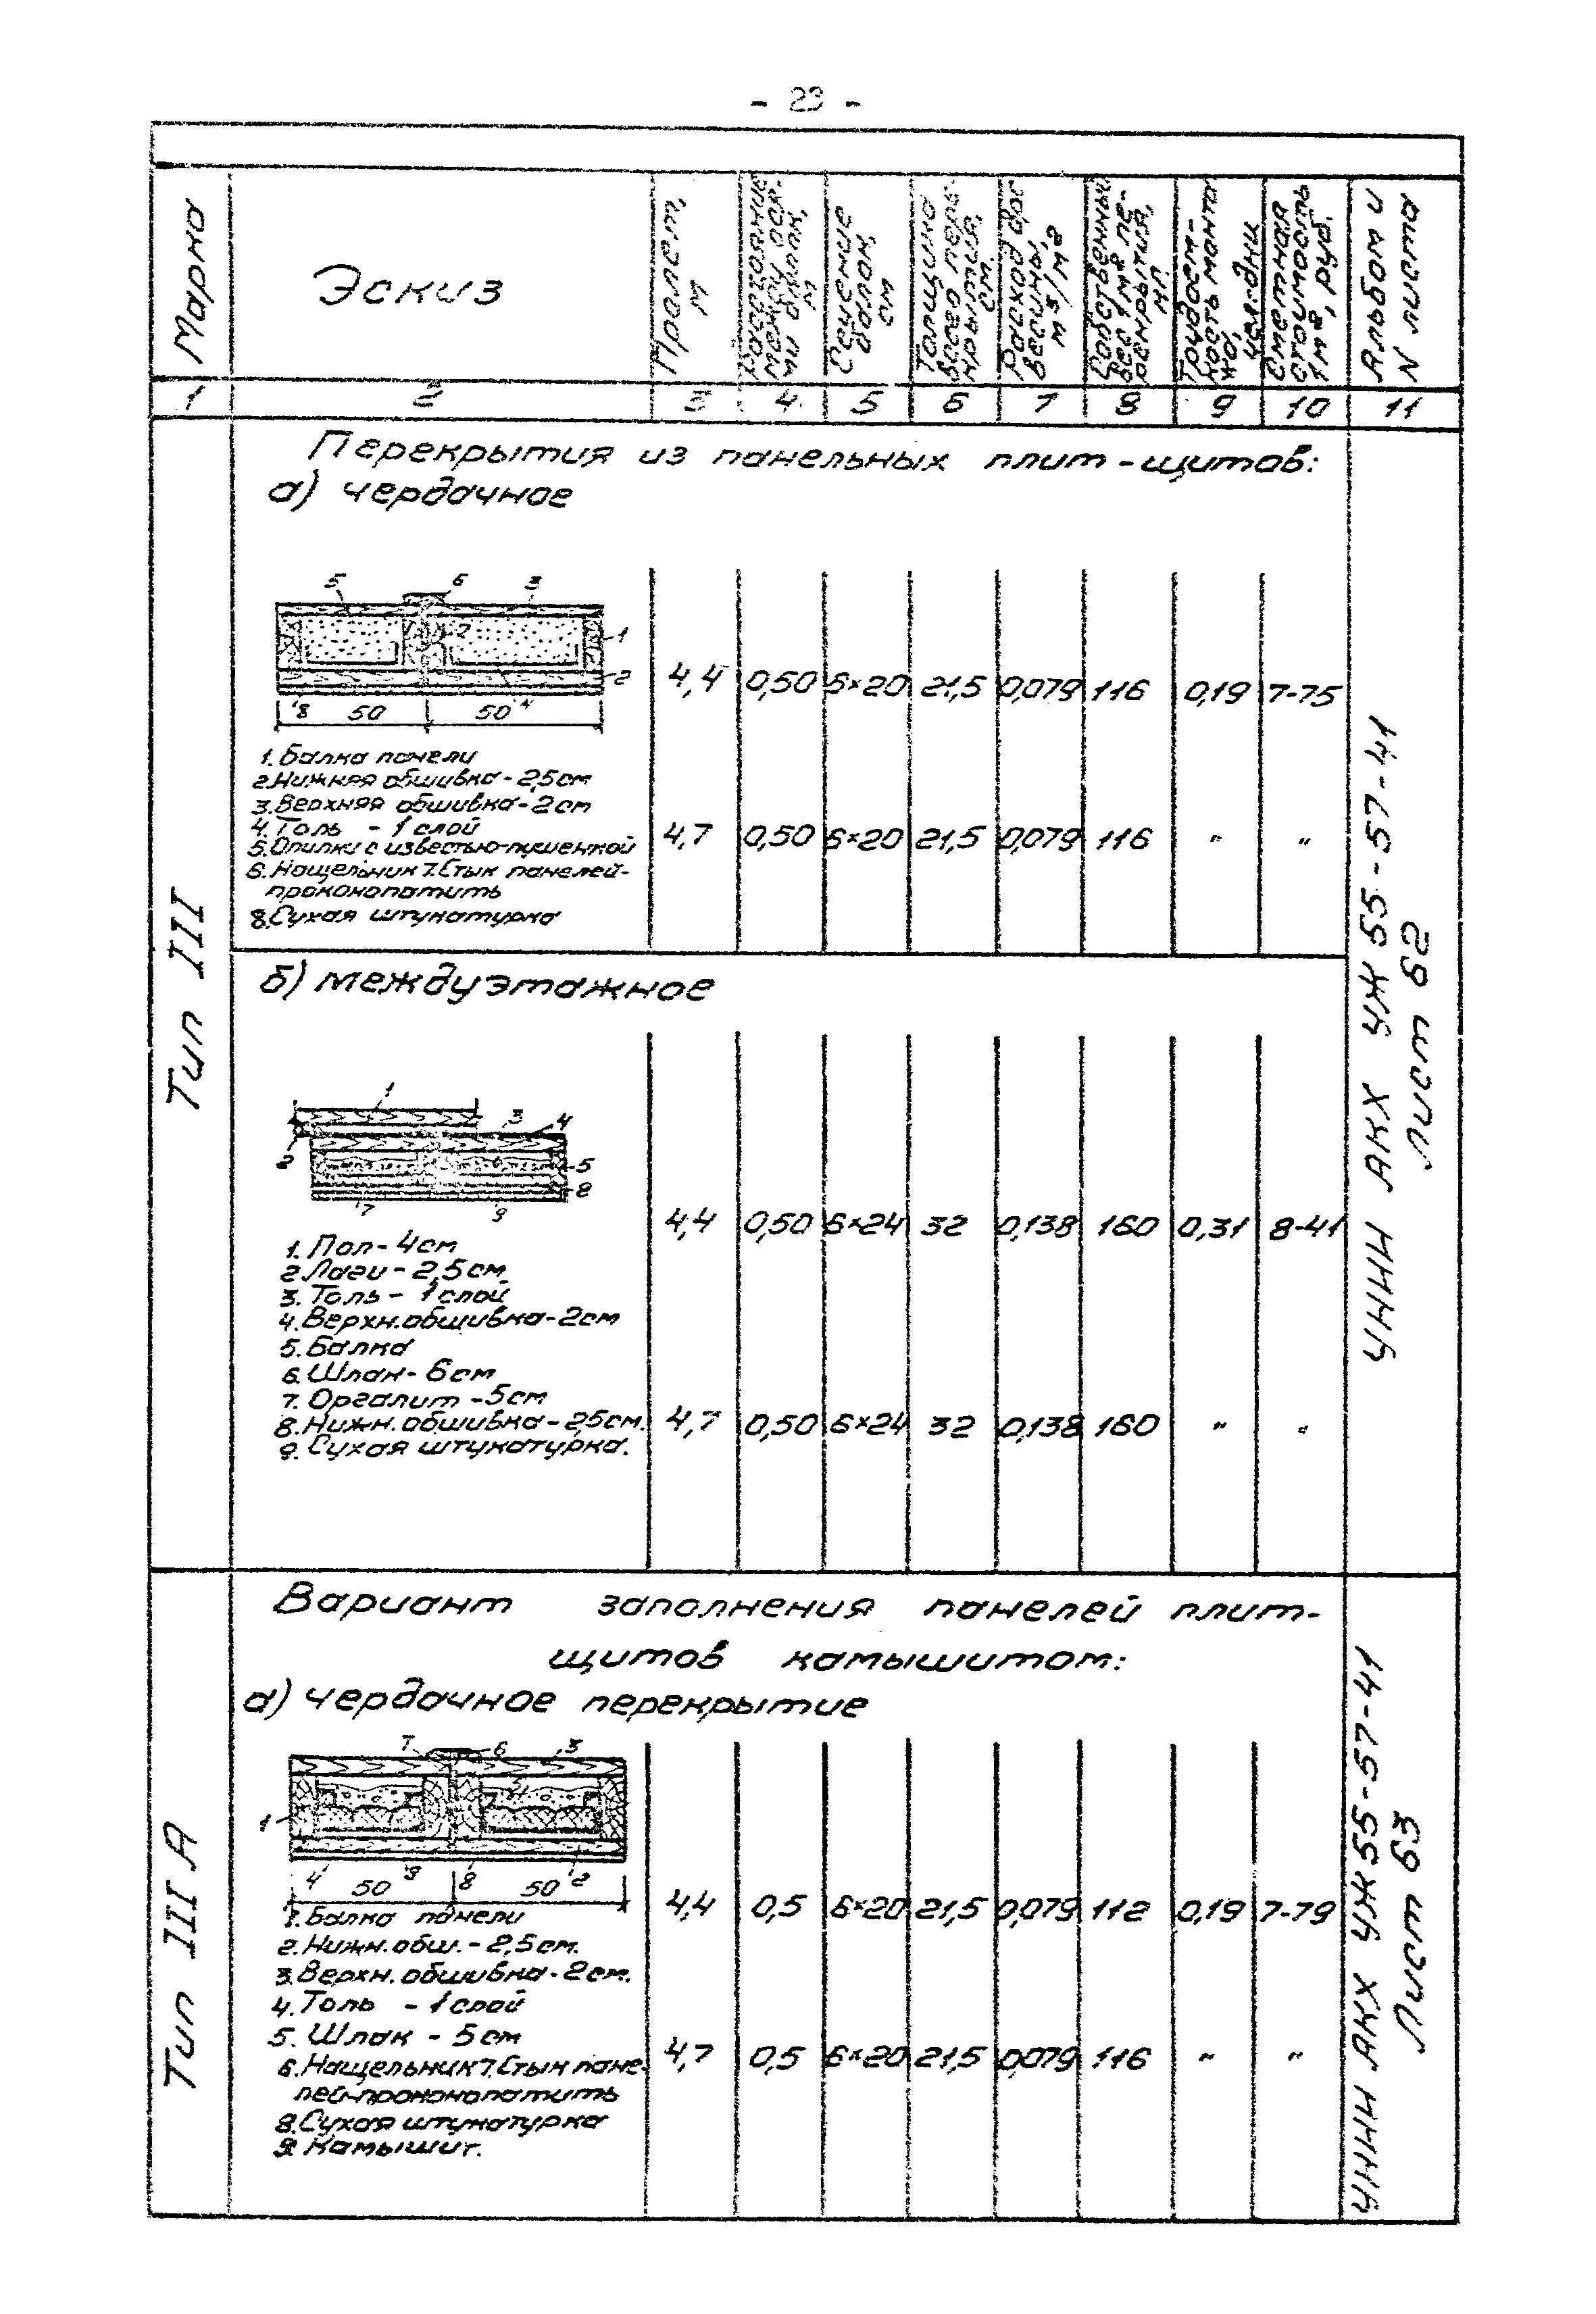 - 23 -
Марка
Эскиз
Пролет, м
Расстояние между осями балок, м
Сечение балок см
Толщина всего перекрытия, см.
Расход древесины, м³/м²
Собственный вес 1м² перекрытия, кг.
Трудоемкость монтажа, чел.-дни
Сметная стоимость 1м², руб.
Альбом и N листа
1 2 3 4 5 6 7 8 9 10 11
Тип III
Перекрытия из панельных плит-щитов:
а) чердачное
5 6 3
7 1
2
8 50 50 4
4,4 0,50 6×20 21,5 0,079 116 0,19 7-75
1. Балка панели
2. Нижняя обшивка - 2,5см
3. Верхняя обшивка - 2см
4. Толь - 1 слой
5. Опилки с известью-пушенкой
6. Нащельник 7. Стык панелей-
проконопатить
8. Сухая штукатурка
4,7 0,50 6×20 21,5 0,079 116 " "
УНИИ АКХ УЖ 55-57-41
Лист 62
б) междуэтажное
1
3 4
2 6 5
8
7 9
4,4 0,50 6×24 32 0,138 160 0,31 8-41
1. Пол - 4см
2. Лаги - 2,5см
3. Толь - 1 слой
4. Верхн. обшивка - 2см
5. Балка
6. Шлак - 6см
7. Оргалит - 5см
8. Нижн. обшивка - 2,5см.
9. Сухая штукатурка.
4,7 0,50 6×24 32 0,138 160 " "
Тип III А
Вариант заполнения панелей плит-
щитов камышитом:
а) чердачное перекрытие
7 6 3
5
1
4 9 8 2
50 50
4,4 0,5 6×20 21,5 0,079 112 0,19 7-79
1. Балка панели
2. Нижн. обш. - 2,5см.
3. Верхн. обшивка - 2см.
4. Толь - 1 слой
5. Шлак - 5см
6. Нащельник 7. Стык пане-
лей-проконопатить
8. Сухая штукатурка
9. Камышит.
4,7 0,5 6×20 21,5 0,079 116 " "
УНИИ АКХ УЖ 55-57-41
Лист 63